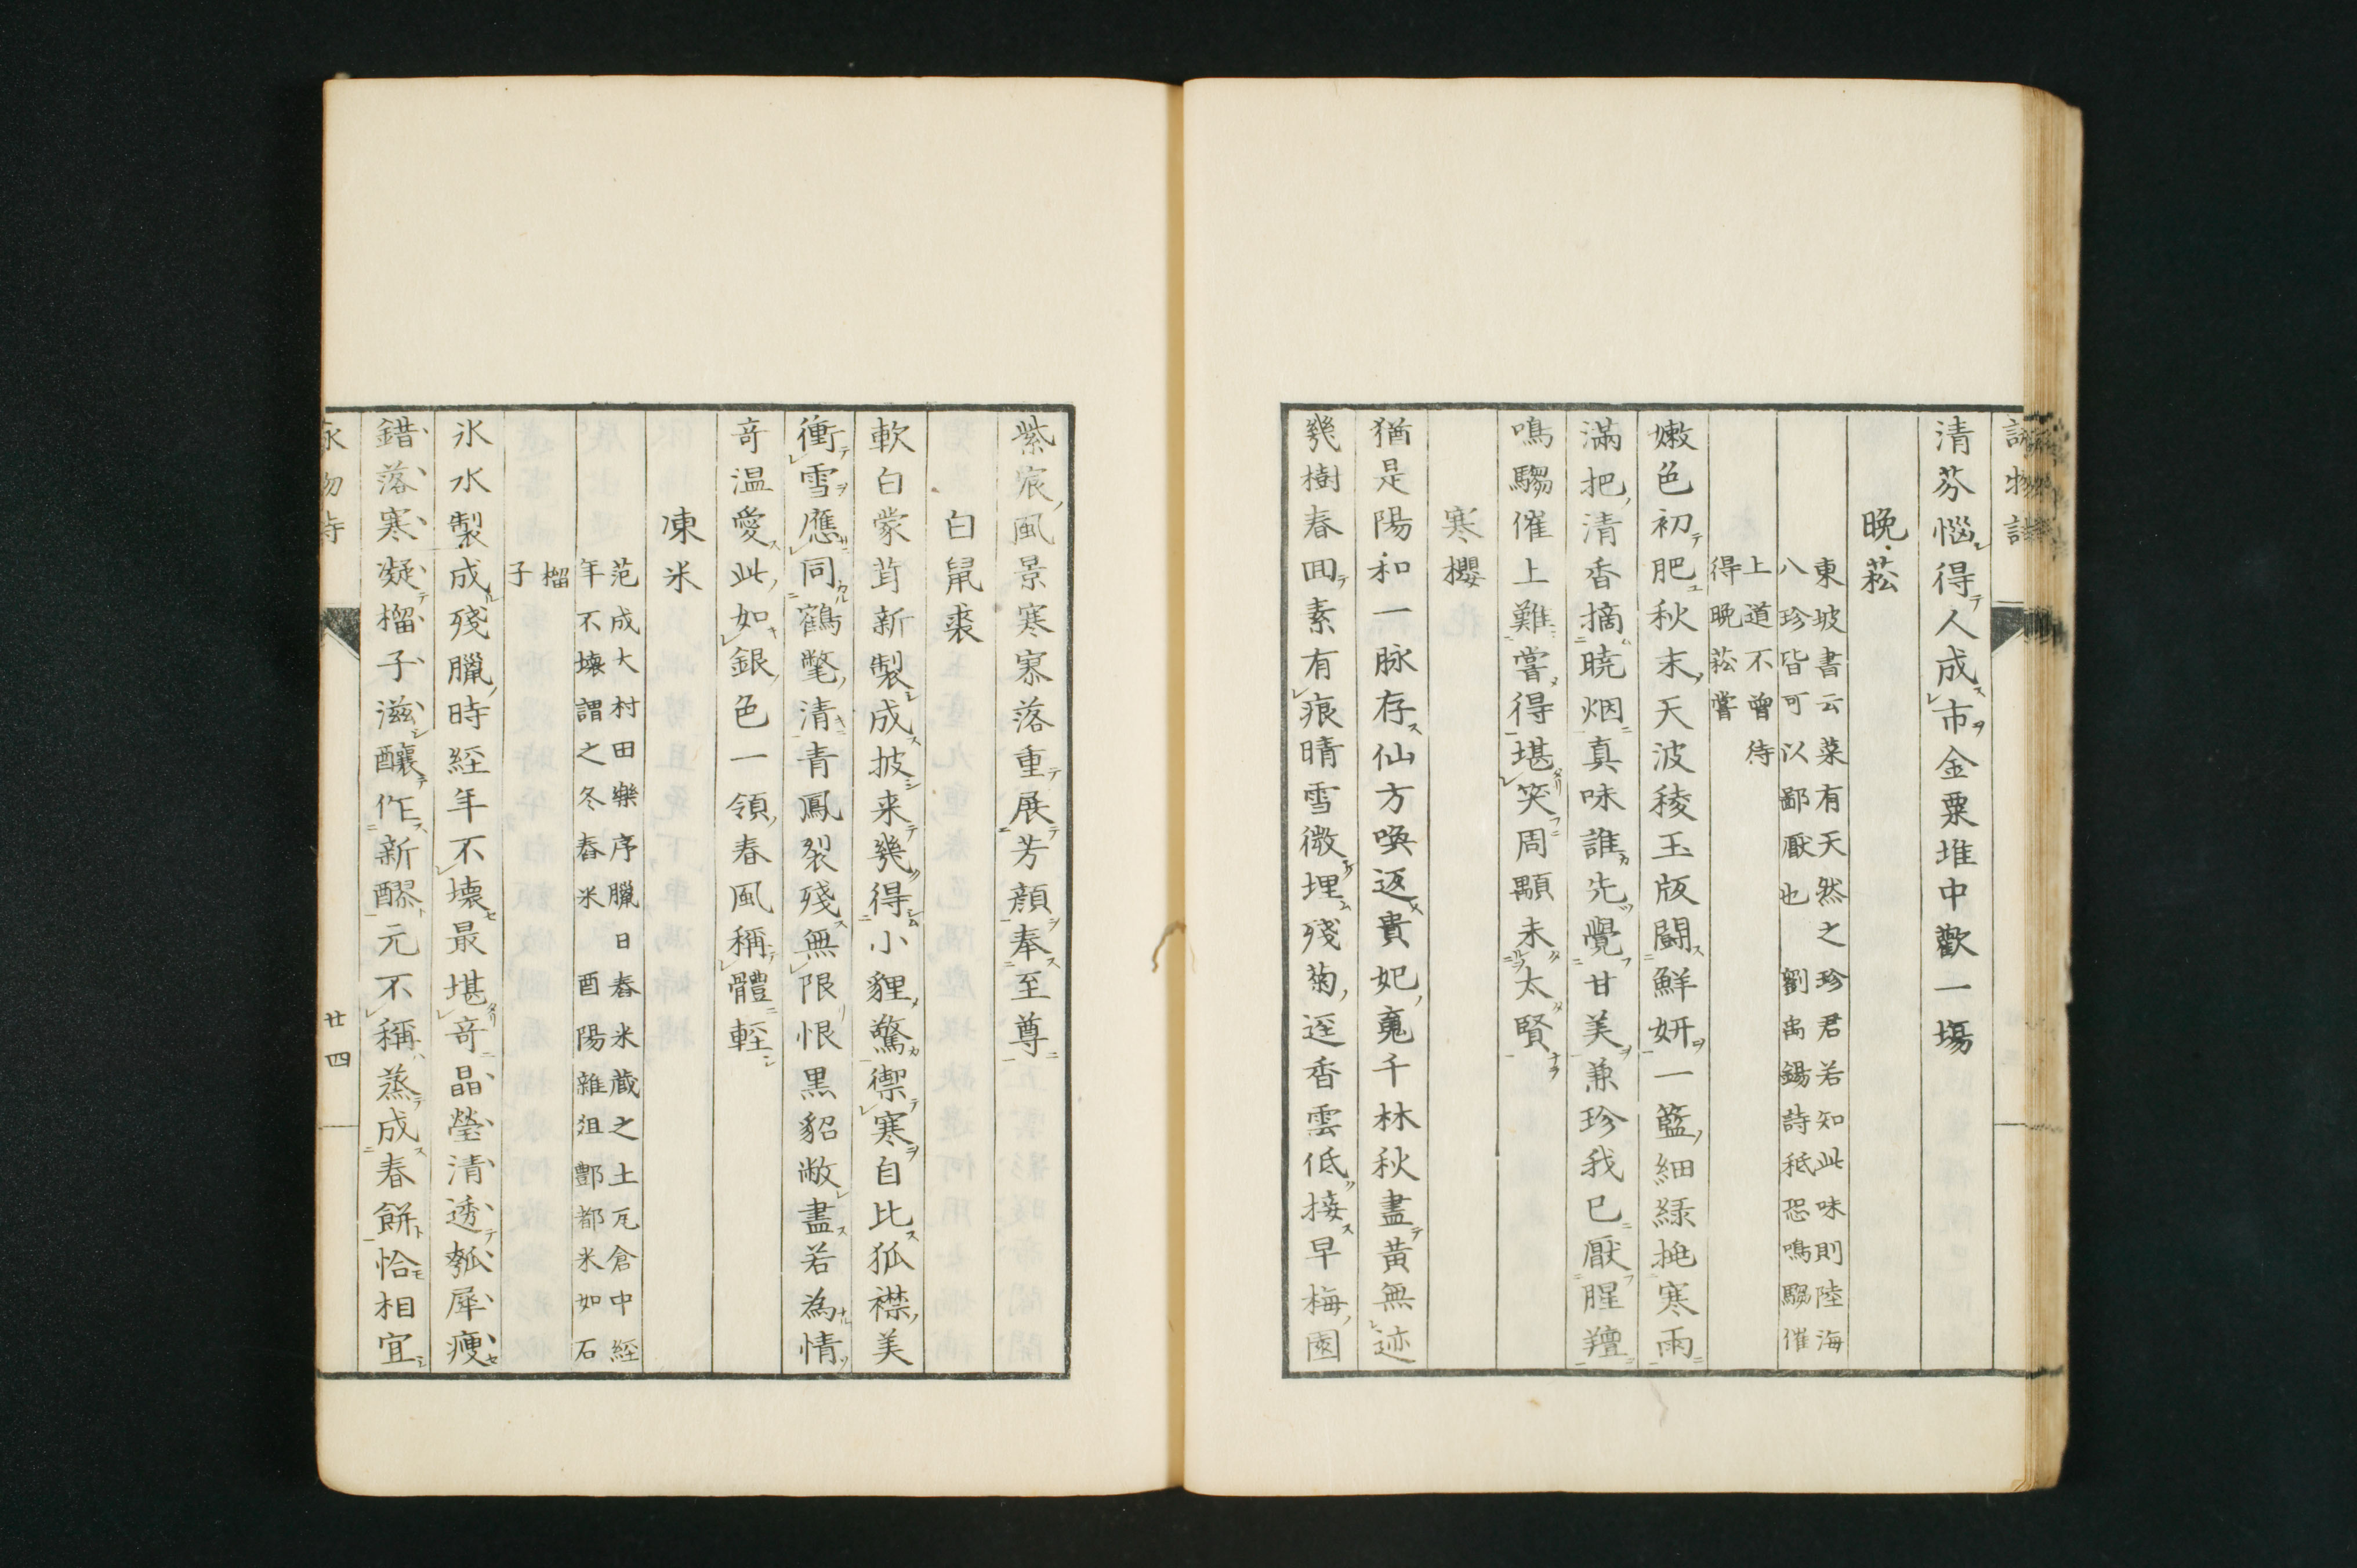 清芬惱得人成市金粟堆中歡一場
晩菘
東坡書云菜有天然之珍君若知此味則陸海
八珍皆可以鄙厭也 劉禹錫詩秪恐鳴騶催
上道不曾待
得晩菘嘗
嫩色初肥秋末天波稜玉版鬪鮮妍一籃細緑挑寒雨
滿把清香摘曉烟真味誰先覺甘美兼珍我已厭腥羶
鳴騶催上難嘗得堪笑周顒未太賢
寒櫻
猶是陽和一脉存仙方喚返貴妃䰟千林秋盡黄無迹
幾樹春回素有痕晴雪微埋殘菊逕香雲低接早梅園
紫宸風景寒寡落重展芳顔奉至尊
白鼠裘
軟白蒙茸新製成披来幾得小貍驚禦寒自比狐襟美
衝雪應同鶴氅清青鳳裂殘無限恨黒貂敝盡若為情
竒温愛此如銀色一領春風稱體輕
凍米
范成大村田樂序臘日舂米蔵之土瓦倉中經
年不壊謂之冬舂米 酉陽雜俎酆都米如石
榴
子
氷水製成殘臘時経年不壊最堪竒晶瑩清透瓠犀瘦
錯落寒凝榴子滋釀作新醪元不稱蒸成春餅恰相宜
廿四